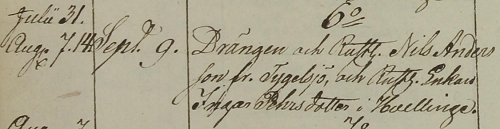 Julii 31.
6o
Aug. 7. 14 Sept. 9. Drängen och Ryttr. Nils Anders
son fr. Tygelsjö, och Ryttr. Enkan
Ingar Pehrs dotter i Hvellinge.